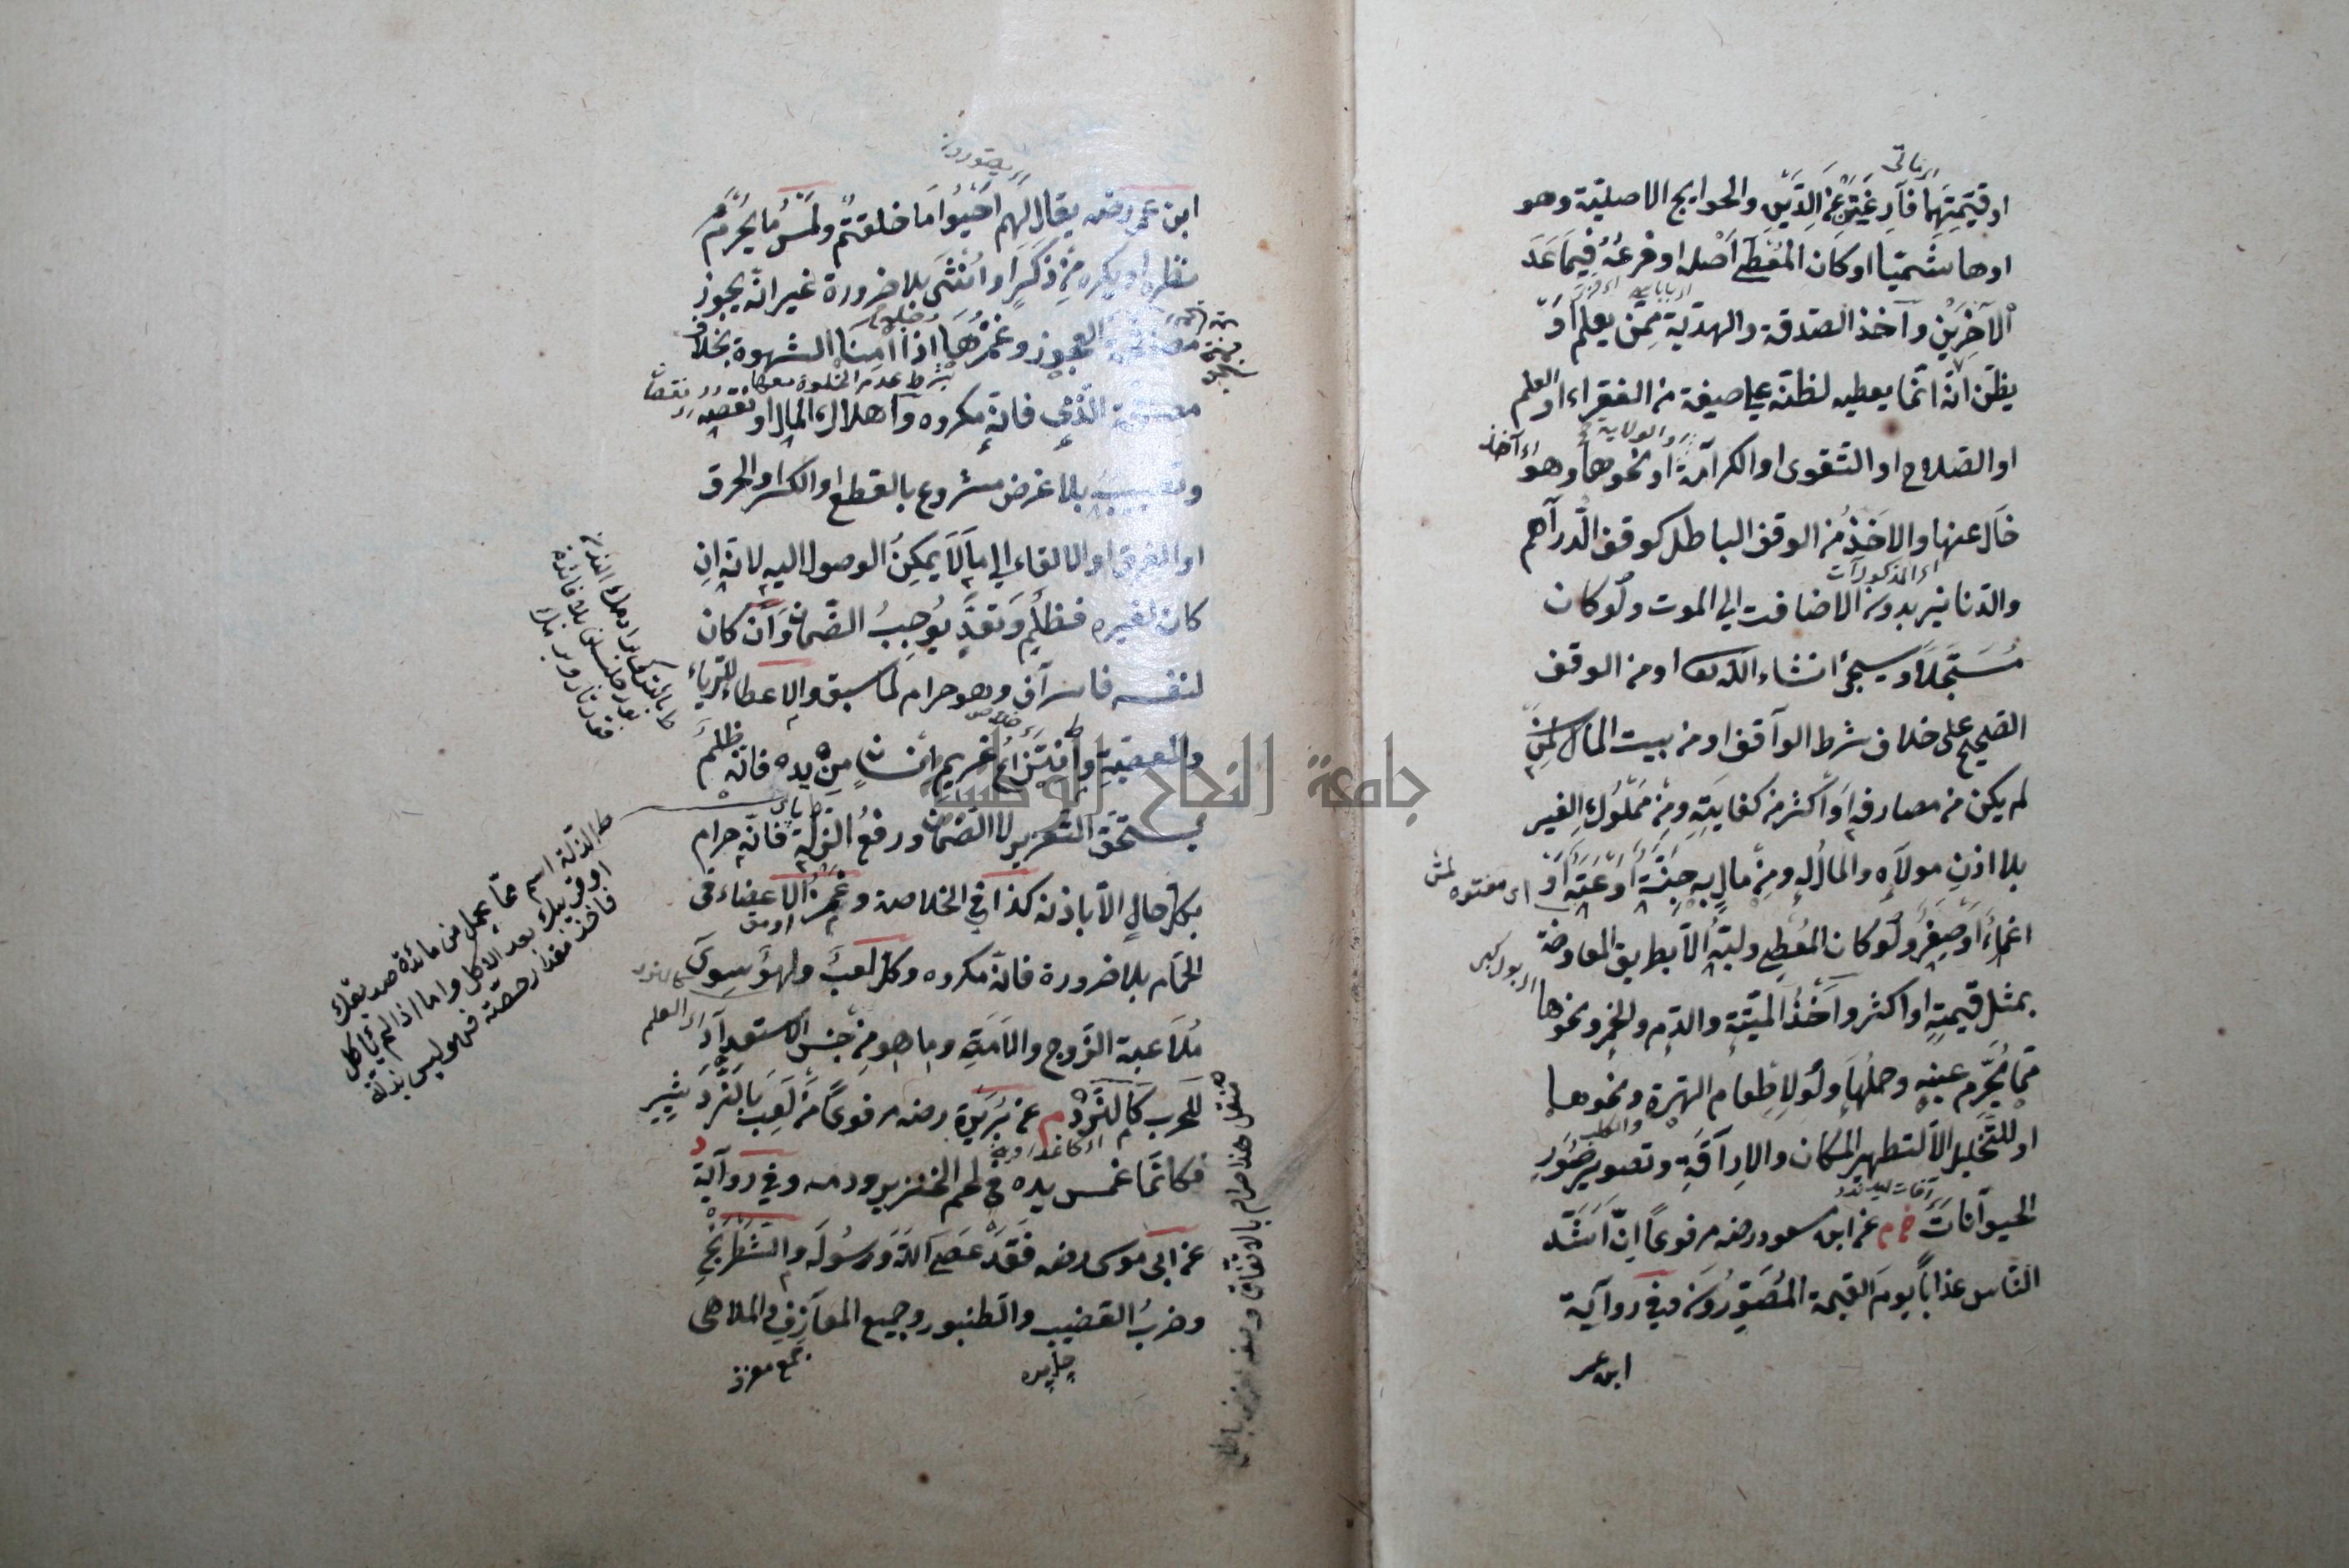 او قيمتها فارغتين عن الدين والحوايج الاصلية وهو
او هاشميا او كان المعطي اصله او فرعه فيما عدا
الآخرين وآخذ الصدقة والهدية ممن يعلم او
يظن انه انما يعطيه لظنه علي صفة من الفقراء او العلم
او الصلاح او التقوى او الكرامة او نحوها وهو
خال عنها والاخذ من الوقف الباطل كوقف الدراهم
والدنانير بدون الاضافت الي الموت ولو كان
مسجلا وسيجئ انشاء الله تعا او من الوقف
الصحيح على خلاف شرط الواقف او من بيت المال لمن
لم يكن من مصارفه او اكثر من كفايته ومن مملوك الغير
بلا اذن مولاه والمال له ومن مال به جنة او عته او
اغماء او صغر ولو كان المعطي وليه الا بطريق المعاوضة
بمثل قيمته او اكثر واخذ الميتة والدم والخمر ونحوها
مما يحرم عينه وحملها ولو لاطعام الهرة ونحوها
او للتخليل الا لتطهير المكان والاراقة وتصوير صور
الحيوانات خ م عن ابن مسعود رضه مرفوعا ان اشد
الناس عذابا يوم القيمة المصورون وفي رواية
ابن عمر
ابن عمر رضه يقال لهم احيوا ما خلقتم ولمس ما يحرم
نظره او يكره من ذكر او انثى بلا ضرورة غير انه يجوز
مصافحة العجوز وغمزها اذا امنا الشهوة بخلاف
بشرط عدم الخلوة معها
مصافحة الذمي فانه مكروه واهلاك المال او نقصه
وتعييبه بلا غرض مشروع بالقطع او الكسر او الحرق
او الغرق او الالقاء الي ما لا يمكن الوصول اليه لانه ان
كان لغيره فظلم وتعد يوجب الضمان وان كان
لنفسه فاسراف وهو حرام لما سبق والاعطاء للرياء
والمعصية وانتزاع غريم انسان من يده فانه ظلم
يستحق التعزير لا الضمان ورفع الزلة فانه حرام
بكل حال الا باذنه كذا في الخلاصة وغمز الاعضاء في
الحمام بلا ضرورة فانه مكروه وكل لعب ولهو سوى
ملاعبة الزوج والامة وما هو من جنس الاستعداد
للحرب كالنرد م عن بريدة رضه مرفوعا من لعب بالنرد شير
فكانما غمس يده في لحم الخنزير ودمه وفي رواية د
عن ابي موسى رضه فقد عصى الله ورسوله والشطرنج
وضرب القضيب والطنبور وجميع المعازف والملاهى
جمع معزف
ط الذلة اسم مما يحمل من مائدة صديقك
او قريبك بعد الاكل واما اذا لم يأكل
فاخذ مقدار حصته فهو ليس بذلة
جامعة النجاح الوطنية